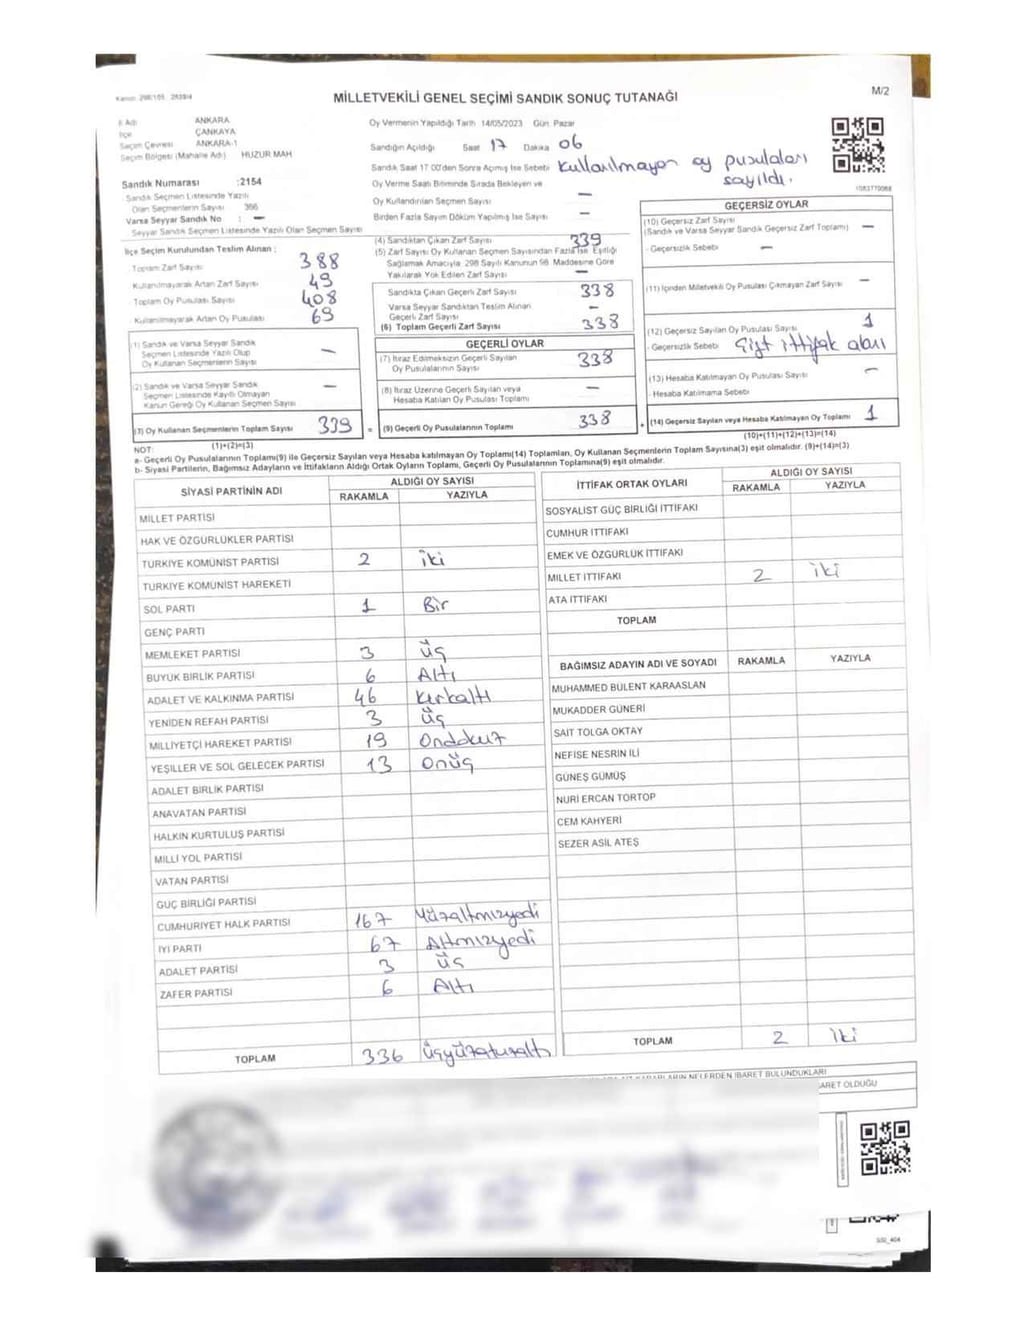 Kanun: 298/105, 2839/4
MİLLETVEKİLİ GENEL SEÇİMİ SANDIK SONUÇ TUTANAĞI
M/2
İl Adı ANKARA
İlçe ÇANKAYA
Seçim Çevresi ANKARA-1
Seçim Bölgesi (Mahalle Adı) HUZUR MAH
Sandık Numarası :2154
Sandık Seçmen Listesinde Yazılı
Olan Seçmenlerin Sayısı 366
Varsa Seyyar Sandık No : -
Seyyar Sandık Seçmen Listesinde Yazılı Olan Seçmen Sayısı
Oy Vermenin Yapıldığı Tarih 14/05/2023 Gün Pazar
Sandığın Açıldığı Saat 17 Dakika 06
Sandık Saat 17 00'den Sonra Açılmış İse Sebebi Kullanılmayan oy pusulaları
sayıldı.
Oy Verme Saati Bitiminde Sırada Bekleyen ve
Oy Kullandırılan Seçmen Sayısı -
Birden Fazla Sayım Döküm Yapılmış İse Sayısı -
1083770068
İlçe Seçim Kurulundan Teslim Alınan ;
Toplam Zarf Sayısı 388
Kullanılmayarak Artan Zarf Sayısı 49
Toplam Oy Pusulası Sayısı 408
Kullanılmayarak Artan Oy Pusulası 69
(1) Sandık ve Varsa Seyyar Sandık
Seçmen Listesinde Yazılı Olup
Oy Kullanan Seçmenlerin Sayısı -
(2) Sandık ve Varsa Seyyar Sandık
Seçmen Listesinde Kayıtlı Olmayan
Kanun Gereği Oy Kullanan Seçmen Sayısı -
(3) Oy Kullanan Seçmenlerin Toplam Sayısı 339
(1)+(2)=(3)
(4) Sandıktan Çıkan Zarf Sayısı 339
(5) Zarf Sayısı Oy Kullanan Seçmen Sayısından Fazla İse Eşitliği
Sağlamak Amacıyla 298 Sayılı Kanunun 98. Maddesine Göre
Yakılarak Yok Edilen Zarf Sayısı -
Sandıkta Çıkan Geçerli Zarf Sayısı 338
Varsa Seyyar Sandıktan Teslim Alınan
Geçerli Zarf Sayısı -
(6) Toplam Geçerli Zarf Sayısı 338
GEÇERLİ OYLAR
(7) İtiraz Edilmeksizin Geçerli Sayılan
Oy Pusulalarının Sayısı 338
(8) İtiraz Üzerine Geçerli Sayılan veya
Hesaba Katılan Oy Pusulası Toplamı -
= (9) Geçerli Oy Pusulalarının Toplamı 338
GEÇERSİZ OYLAR
(10) Geçersiz Zarf Sayısı
(Sandık ve Varsa Seyyar Sandık Geçersiz Zarf Toplamı) -
- Geçersizlik Sebebi -
(11) İçinden Milletvekili Oy Pusulası Çıkmayan Zarf Sayısı -
(12) Geçersiz Sayılan Oy Pusulası Sayısı 1
- Geçersizlik Sebebi Çift ittifak alanı
(13) Hesaba Katılmayan Oy Pusulası Sayısı -
- Hesaba Katılmama Sebebi
+ (14) Geçersiz Sayılan veya Hesaba Katılmayan Oy Toplamı 1
(10)+(11)+(12)+(13)=(14)
NOT:
a- Geçerli Oy Pusulalarının Toplamı(9) ile Geçersiz Sayılan veya Hesaba katılmayan Oy Toplamı(14) Toplamları, Oy Kullanan Seçmenlerin Toplam Sayısına(3) eşit olmalıdır. (9)+(14)=(3)
b- Siyasi Partilerin, Bağımsız Adayların ve İttifakların Aldığı Ortak Oyların Toplamı, Geçerli Oy Pusulalarının Toplamına(9) eşit olmalıdır.
SİYASİ PARTİNİN ADI ALDIĞI OY SAYISI
RAKAMLA YAZIYLA
MİLLET PARTİSİ
HAK VE ÖZGÜRLÜKLER PARTİSİ
TÜRKİYE KOMÜNİST PARTİSİ 2 iki
TÜRKİYE KOMÜNİST HAREKETİ
SOL PARTİ 1 Bir
GENÇ PARTİ
MEMLEKET PARTİSİ 3 üç
BÜYÜK BİRLİK PARTİSİ 6 Altı
ADALET VE KALKINMA PARTİSİ 46 Kırkaltı
YENİDEN REFAH PARTİSİ 3 üç
MİLLİYETÇİ HAREKET PARTİSİ 19 Ondokuz
YEŞİLLER VE SOL GELECEK PARTİSİ 13 onüç
ADALET BİRLİK PARTİSİ
ANAVATAN PARTİSİ
HALKIN KURTULUŞ PARTİSİ
MİLLİ YOL PARTİSİ
VATAN PARTİSİ
GÜÇ BİRLİĞİ PARTİSİ
CUMHURİYET HALK PARTİSİ 167 Yüzaltmışyedi
İYİ PARTİ 67 Altmışyedi
ADALET PARTİSİ 3 üç
ZAFER PARTİSİ 6 Altı
TOPLAM 336 üçyüzotuzaltı
İTTİFAK ORTAK OYLARI ALDIĞI OY SAYISI
RAKAMLA YAZIYLA
SOSYALİST GÜÇ BİRLİĞİ İTTİFAKI
CUMHUR İTTİFAKI
EMEK VE ÖZGÜRLÜK İTTİFAKI
MİLLET İTTİFAKI 2 iki
ATA İTTİFAKI
TOPLAM
BAĞIMSIZ ADAYIN ADI VE SOYADI RAKAMLA YAZIYLA
MUHAMMED BÜLENT KARAASLAN
MUKADDER GÜNERİ
SAİT TOLGA OKTAY
NEFİSE NESRİN İLİ
GÜNEŞ GÜMÜŞ
NURİ ERCAN TORTOP
CEM KAHYERİ
SEZER ASİL ATEŞ
TOPLAM 2 iki
NELERDEN İBARET BULUNDUKLARI
OLDUĞU